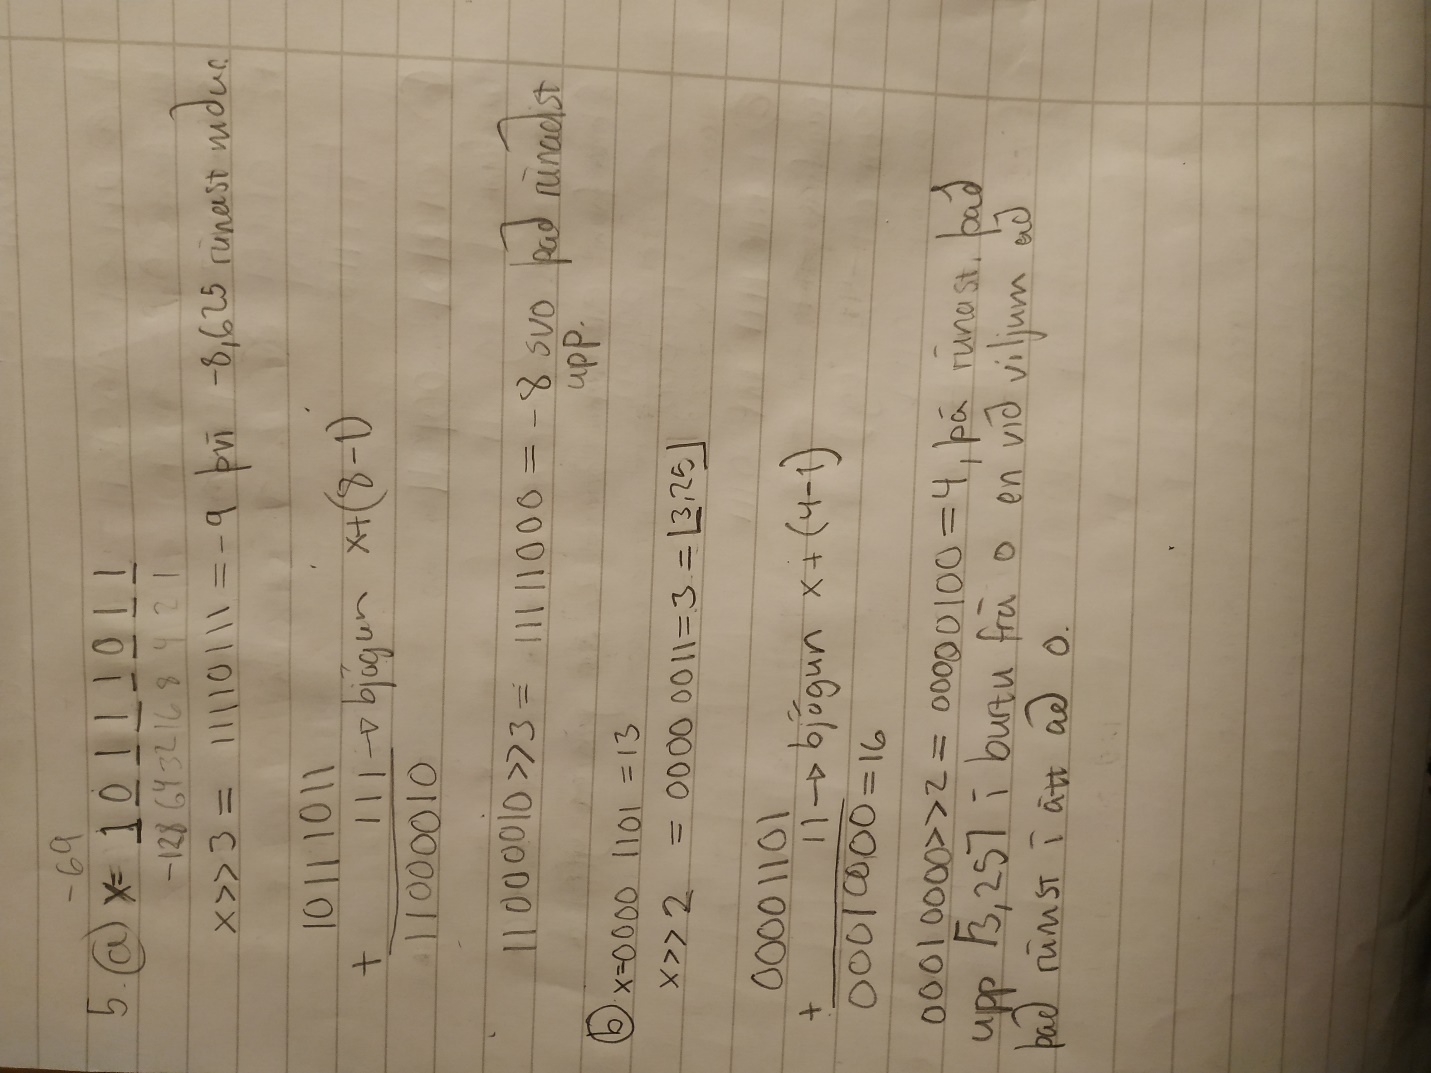 -69
5. (a) x= 1 0 1 1 1 0 1 1
-128 64 32 16 8 4 2 1
x>>3 = 11110111 = -9 því -8,625 rúnast niður.
10111011
+ 111 → bjögun x+(8-1)
11000010
11000010>>3 = 11111000 = -8 svo það rúnaðist
upp.
(b) x=0000 1101 = 13
x>>2 = 0000 0011 = 3 = ⌊3,25⌋
00001101
+ 11 → bjögun x+(4-1)
00010000=16
00010000>>2 = 00000100 = 4, þá rúnast það
upp ⌈3,25⌉ í burtu frá 0 en við viljum að
það rúnist í átt að 0.